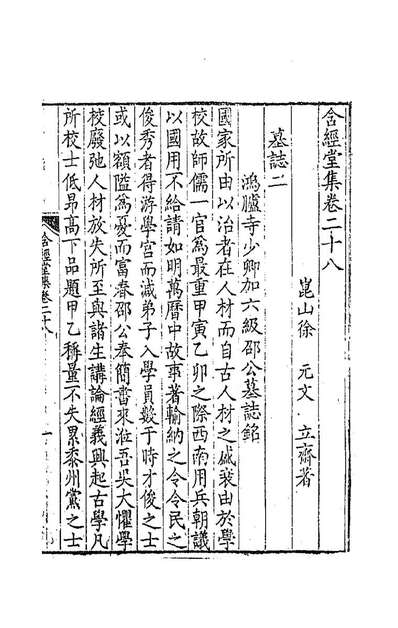 含經堂集卷二十八
崑山徐 元文 立齋著
墓誌二
鴻臚寺少卿加六級邵公墓誌銘
國家所由以治者在人材而自古人材之盛衰由於學
校故師儒一官為最重甲寅乙卯之際西南用兵朝議
以國用不給請如明萬曆中故事著輸納之令令民之
俊秀者得游學宮而減弟子入學員數于時才俊之士
或以額隘為憂而富春邵公奉簡書來涖吾吳大懼學
校廢弛人材放失所至與諸生講論經義興起古學凡
所校士低昂高下品題甲乙稱量不失累黍州黨之士
含經堂集卷二十八 一